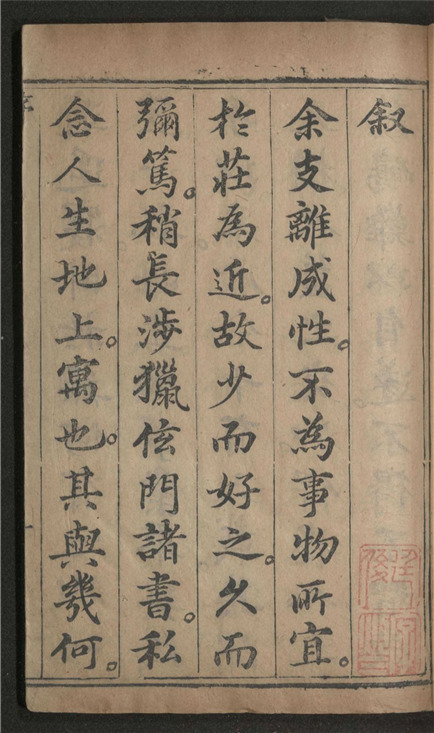 叙
余支離成性。不為事物所宜。
於莊為近。故少而好之。久而
彌篤。稍長涉獵伭門諸書。私
念人生地上。寓也。其與幾何。